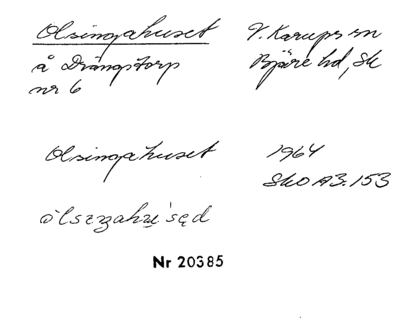 Olsingahuset V. Karups sn
å Drängstorp Bjäre hd, Sk
nr 6
Olsingahuset 1964
Sko A3.153
Nr 20385